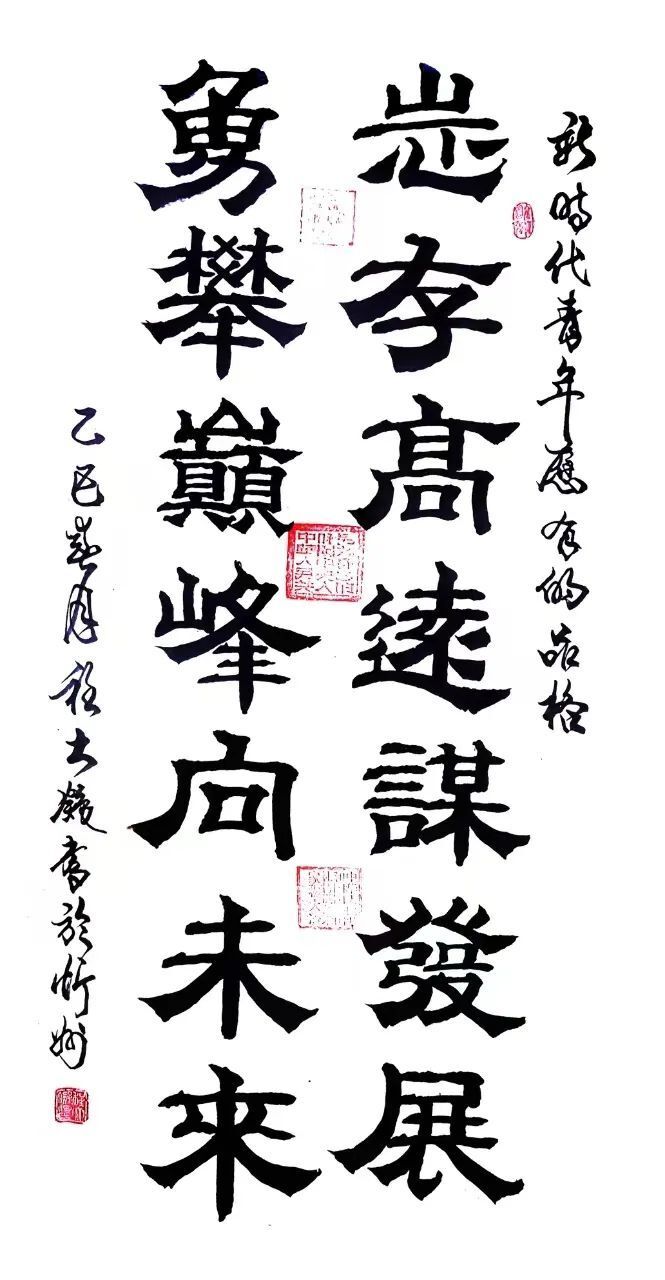 新時代青年應有的品格
志存高遠謀發展
勇攀巔峰向未來
乙巳春月程大鏡書於忻州